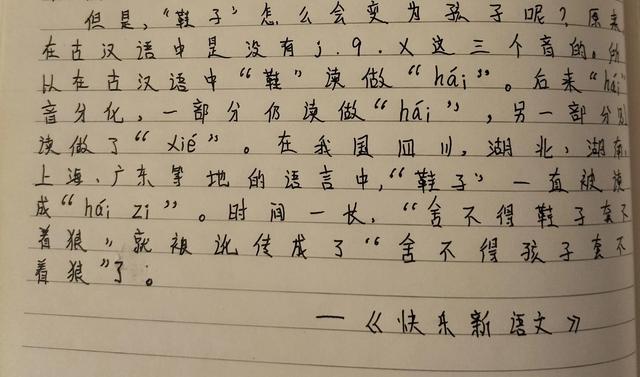 但是，“鞋子”怎么会变为孩子呢？原来
在古汉语中是没有j.q.x这三个音的。所
以在古汉语中“鞋”读做“hái”。后来“hái”
音分化，一部分仍读做“hái”，另一部分则
读做了“xié”。在我国四川，湖北，湖南，
上海、广东等地的语言中，“鞋子”一直被读
成“hái zi”。时间一长，“舍不得鞋子套不
着狼”就被讹传成了“舍不得孩子套不
着狼”了。
—《快乐新语文》